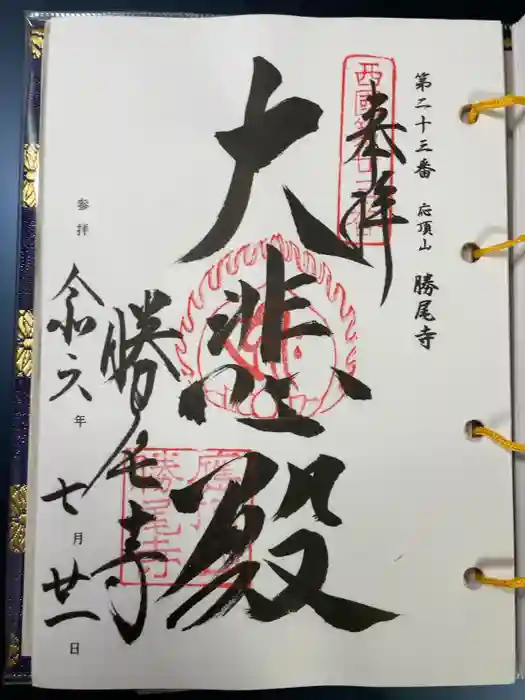 第二十三番 応頂山 勝尾寺
奉拝
西國第廿三番
大悲殿
勝尾寺
應頂山
勝尾寺
参拝 令和六年七月廿一日